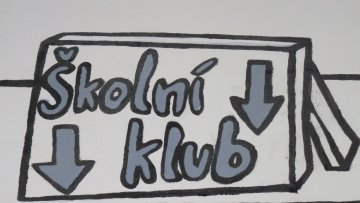 Školní
klub